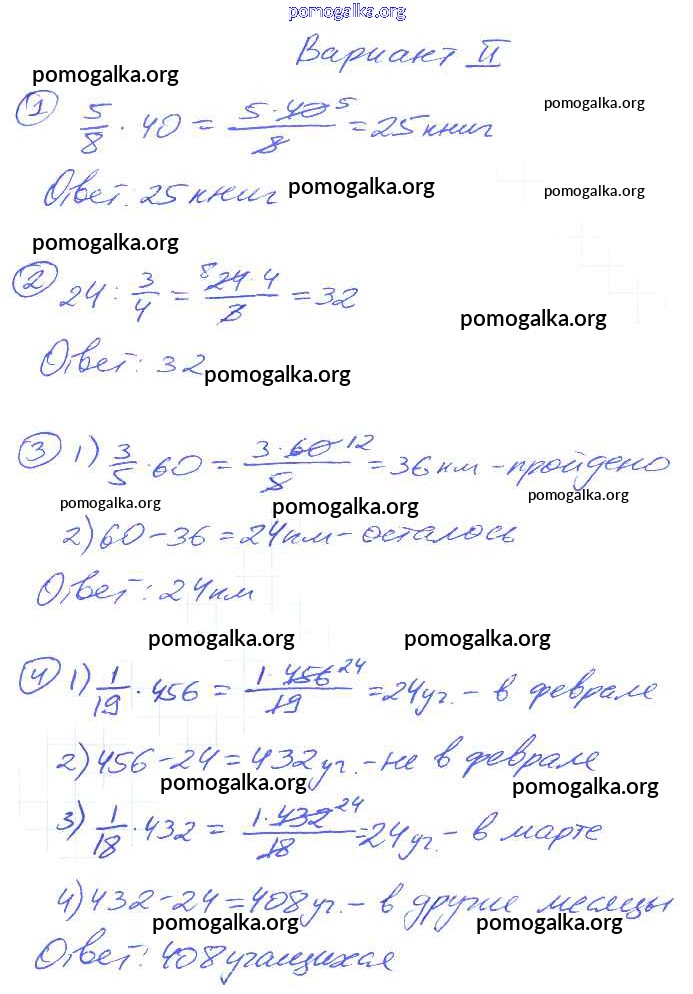 pomogalka.org
Вариант II
pomogalka.org
① 5/8 · 40 = 5·40 5/8 = 25 книг
pomogalka.org
Ответ: 25 книг pomogalka.org
pomogalka.org
pomogalka.org
② 24 : 3/4 = 8 24·4/3 = 32
pomogalka.org
Ответ: 32
pomogalka.org
③ 1) 3/5 · 60 = 3·60 12/5 = 36 км - пройдено
pomogalka.org pomogalka.org pomogalka.org
2) 60 - 36 = 24 км - осталось
Ответ: 24 км
pomogalka.org pomogalka.org
④ 1) 1/19 · 456 = 1·456 24/19 = 24 уч. - в феврале
2) 456 - 24 = 432 уч. - не в феврале
pomogalka.org pomogalka.org
3) 1/18 · 432 = 1·432 24/18 = 24 уч. - в марте
4) 432 - 24 = 408 уч. - в другие месяцы
pomogalka.org pomogalka.org
Ответ: 408 учащихся